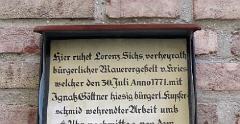 Hier ruhet Lorenz Sichs, verheyrath
bürgerlicher Maurergesell v. Kries
welcher den 30. Juli Anno 1771. mit
Ignatz Göttner hiesig bürgerl. Kupfer-
schmid wehrendter Arbeit umb
Uhr nachmittag von dem